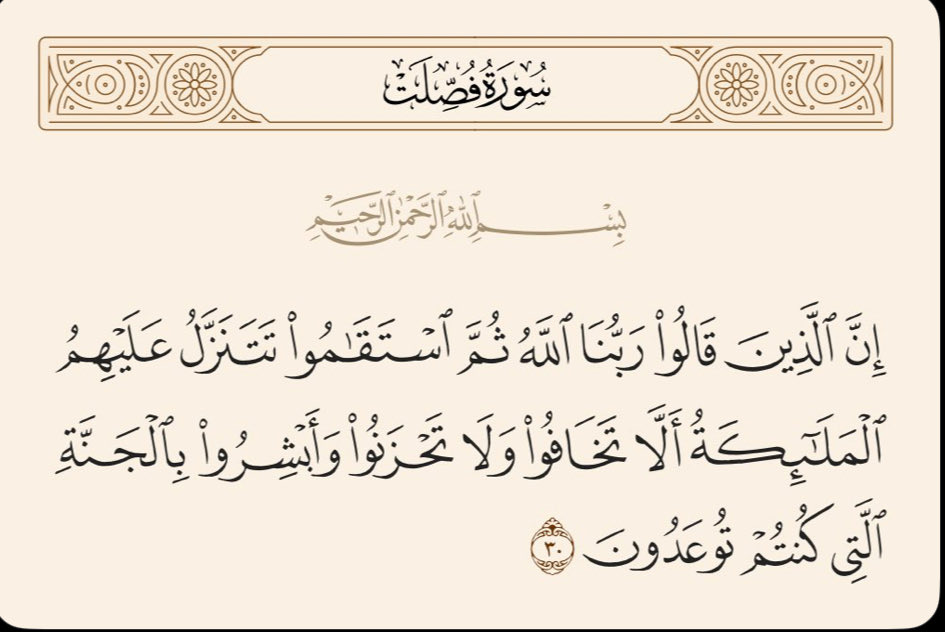 سُورَةُ فُصِّلَتْ
بِسْمِ ٱللَّهِ ٱلرَّحْمَٰنِ ٱلرَّحِيمِ
إِنَّ ٱلَّذِينَ قَالُوا۟ رَبُّنَا ٱللَّهُ ثُمَّ ٱسْتَقَٰمُوا۟ تَتَنَزَّلُ عَلَيْهِمُ
ٱلْمَلَٰٓئِكَةُ أَلَّا تَخَافُوا۟ وَلَا تَحْزَنُوا۟ وَأَبْشِرُوا۟ بِٱلْجَنَّةِ
ٱلَّتِى كُنتُمْ تُوعَدُونَ ٣٠